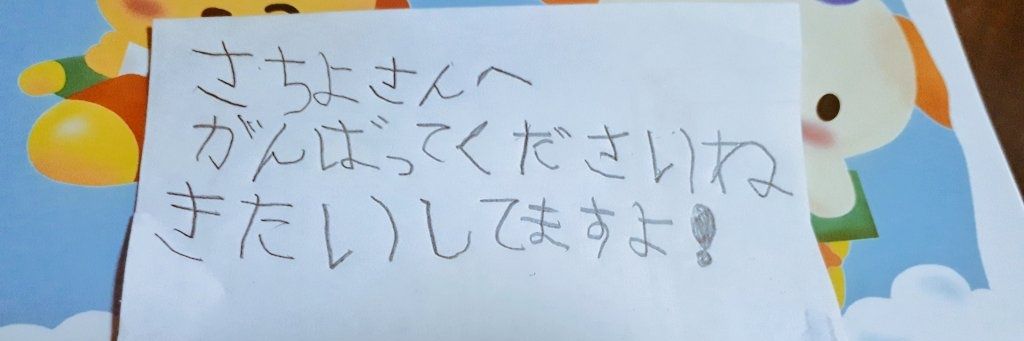 さちよさんへ
がんばってくださいね
きたいしてますよ!